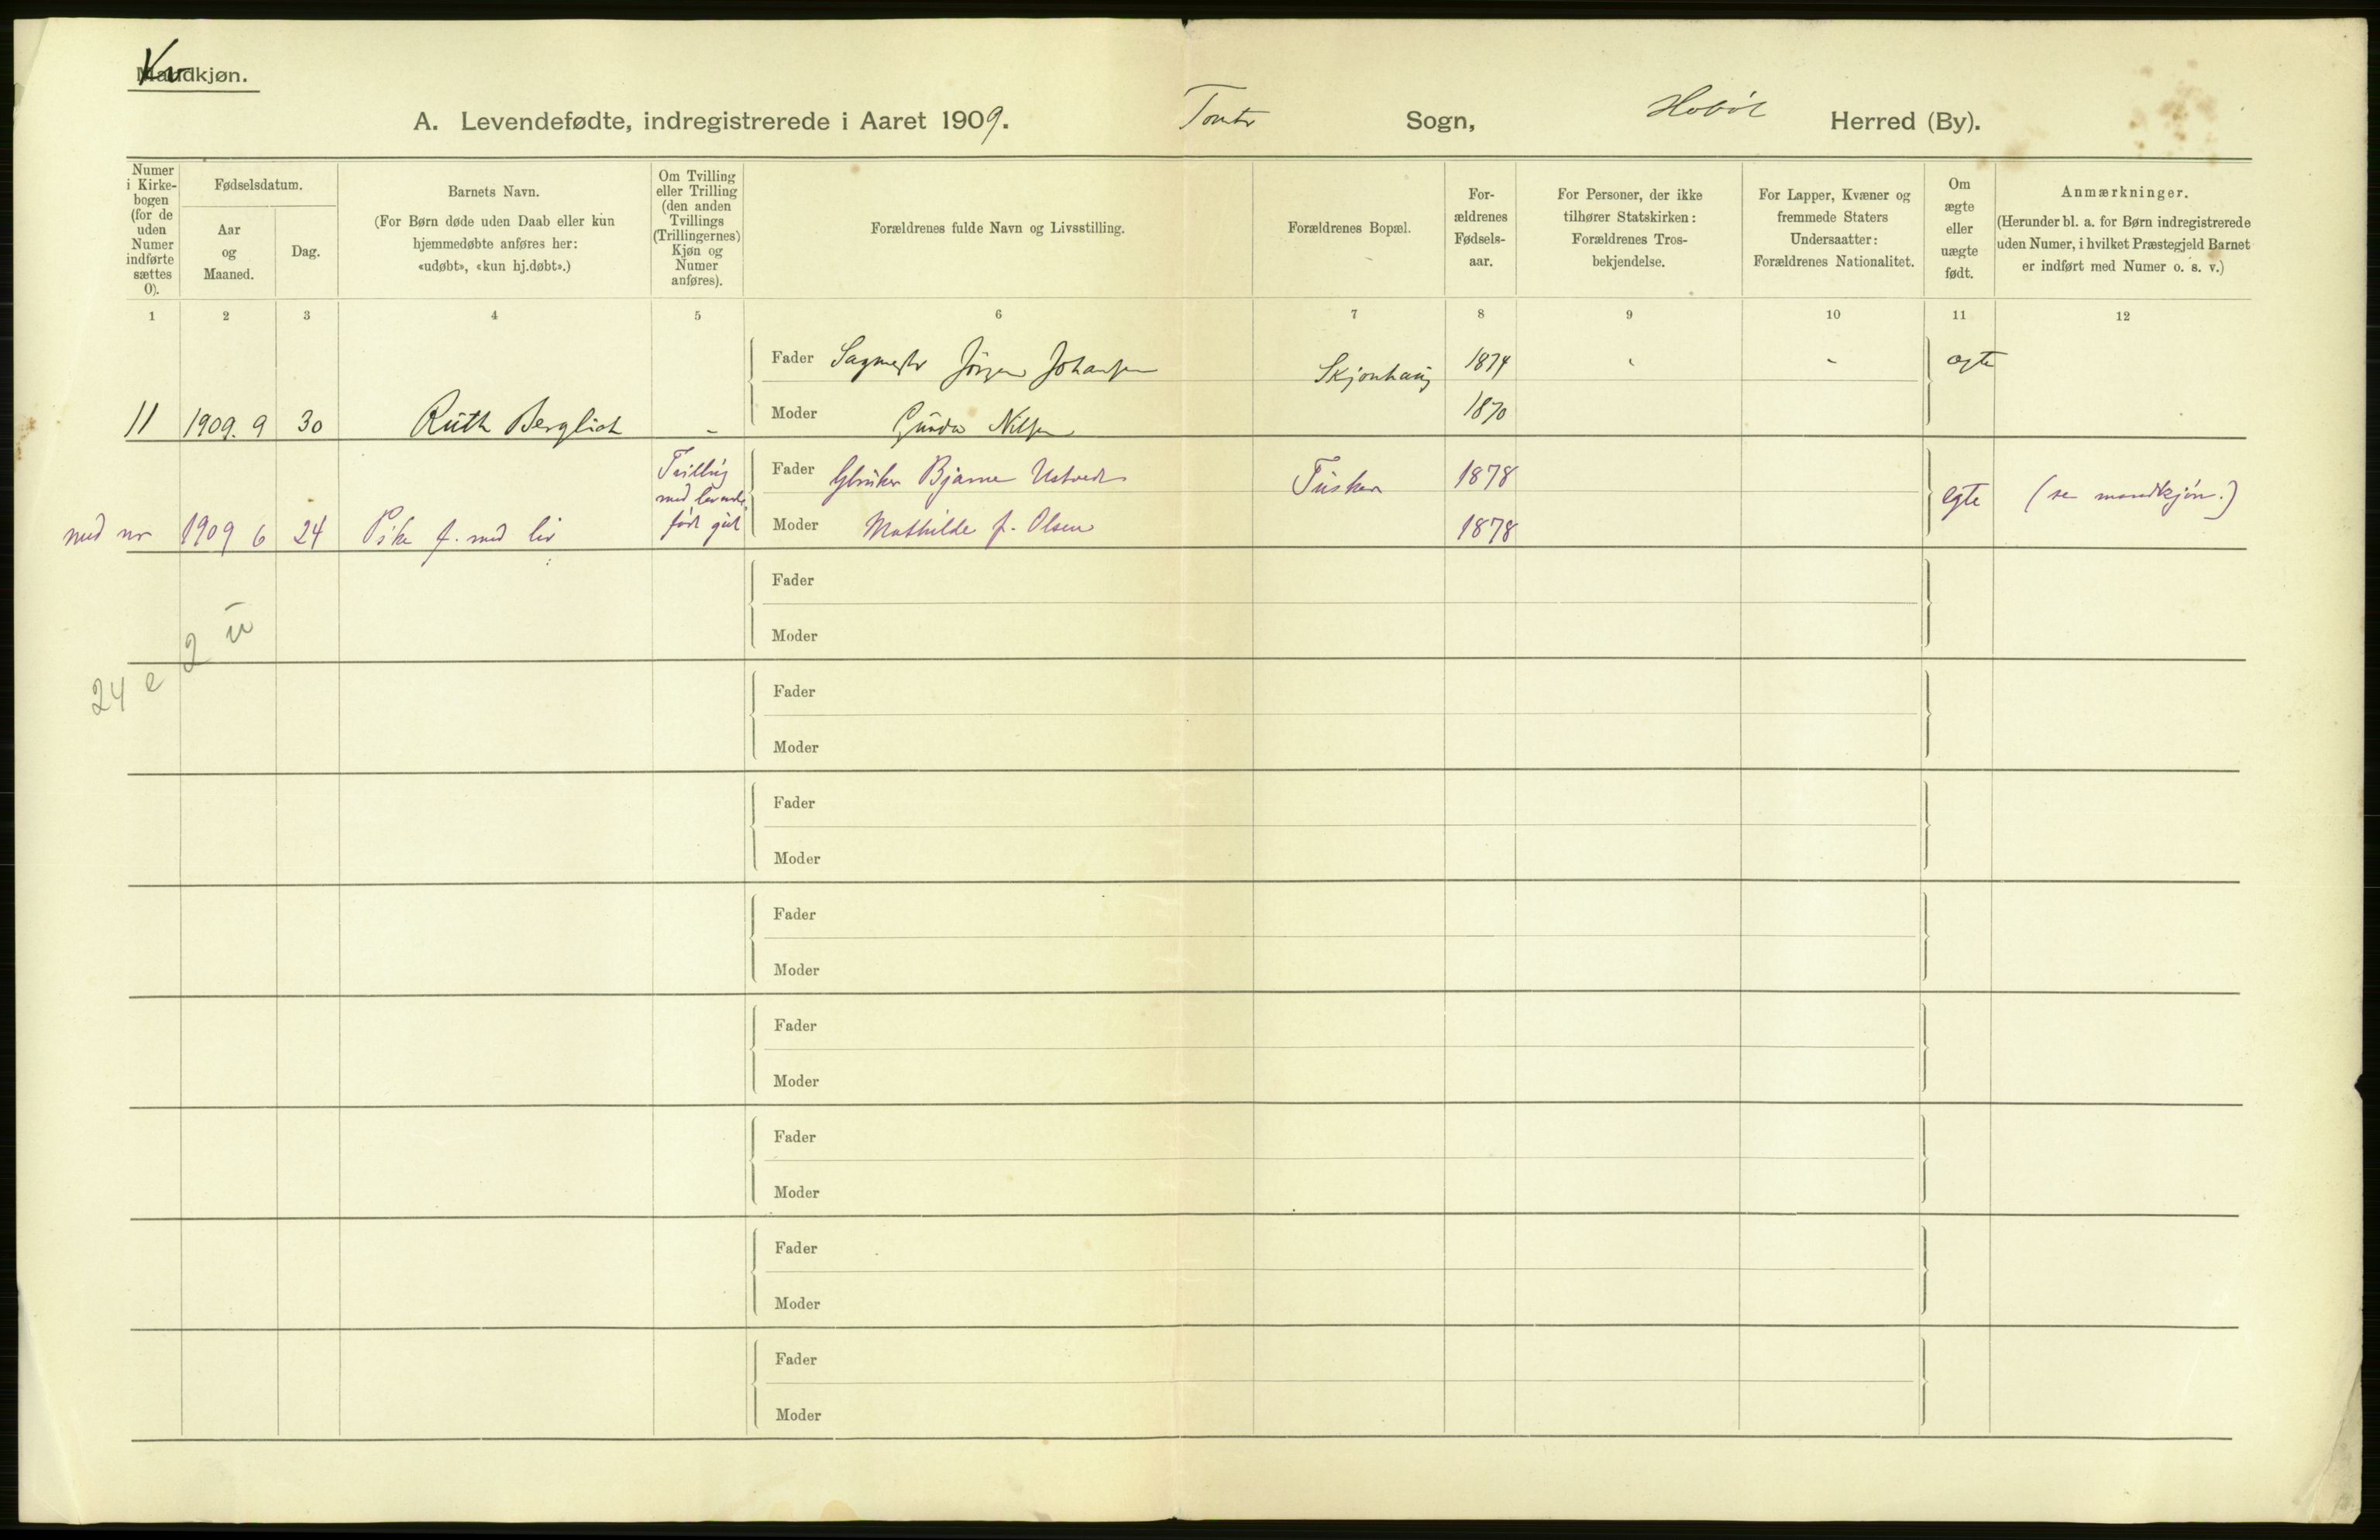 Kv
Mandkjøn.
A. Levendefødte, indregistrerede i Aaret 1909. Tomter Sogn, Hobøl Herred (By).
Numer i Kirkebogen (for de uden Numer indførte sættes 0).
Fødselsdatum.
Aar og Maaned.
Dag.
Barnets Navn.
(For Børn døde uden Daab eller kun hjemmedøbte anføres her: «udøbt», «kun hj.døbt».)
Om Tvilling eller Trilling (den anden Tvillings (Trillingernes) Kjøn og Numer anføres).
Forældrenes fulde Navn og Livsstilling.
Forældrenes Bopæl.
Forældrenes Fødselsaar.
For Personer, der ikke tilhører Statskirken: Forældrenes Trosbekjendelse.
For Lapper, Kvæner og fremmede Staters Undersaatter: Forældrenes Nationalitet.
Om ægte eller uægte født.
Anmærkninger.
(Herunder bl. a. for Børn indregistrerede uden Numer, i hvilket Præstegjeld Barnet er indført med Numer o. s. v.)
1 2 3 4 5 6 7 8 9 10 11 12
Fader Sagmestr Jörgen Johansen Skjonhaug 1874 - - ægte
11 1909. 9 30 Ruth Bergliot - Moder Gunda Nilsen 1870
Fader Gbruker Bjarne Ustvedt 1878
med levende
egte (se mandkjön.)
1909 6 24 Pike f. med liv født gut Moder Mathilde f. Olsen 1878
Fader
2 u
Moder
24 e
Fader
Moder
Fader
Moder
Fader
Moder
Fader
Moder
Fader
Moder
Fader
Moder
Fader
Moder